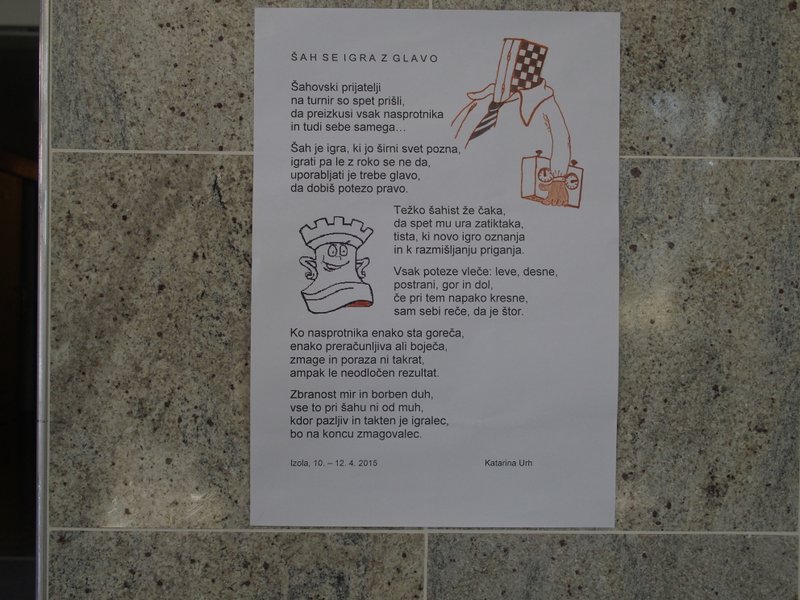 ŠAH SE IGRA Z GLAVO
Šahovski prijatelji
na turnir so spet prišli,
da preizkusi vsak nasprotnika
in tudi sebe samega…
Šah je igra, ki jo širni svet pozna,
igrati pa le z roko se ne da,
uporabljati je trebe glavo,
da dobiš potezo pravo.
Težko šahist že čaka,
da spet mu ura zatiktaka,
tista, ki novo igro oznanja
in k razmišljanju priganja.
Vsak poteze vleče: leve, desne,
postrani, gor in dol,
če pri tem napako kresne,
sam sebi reče, da je štor.
Ko nasprotnika enako sta goreča,
enako preračunljiva ali boječa,
zmage in poraza ni takrat,
ampak le neodločen rezultat.
Zbranost mir in borben duh,
vse to pri šahu ni od muh,
kdor pazljiv in takten je igralec,
bo na koncu zmagovalec.
Izola, 10. – 12. 4. 2015 Katarina Urh